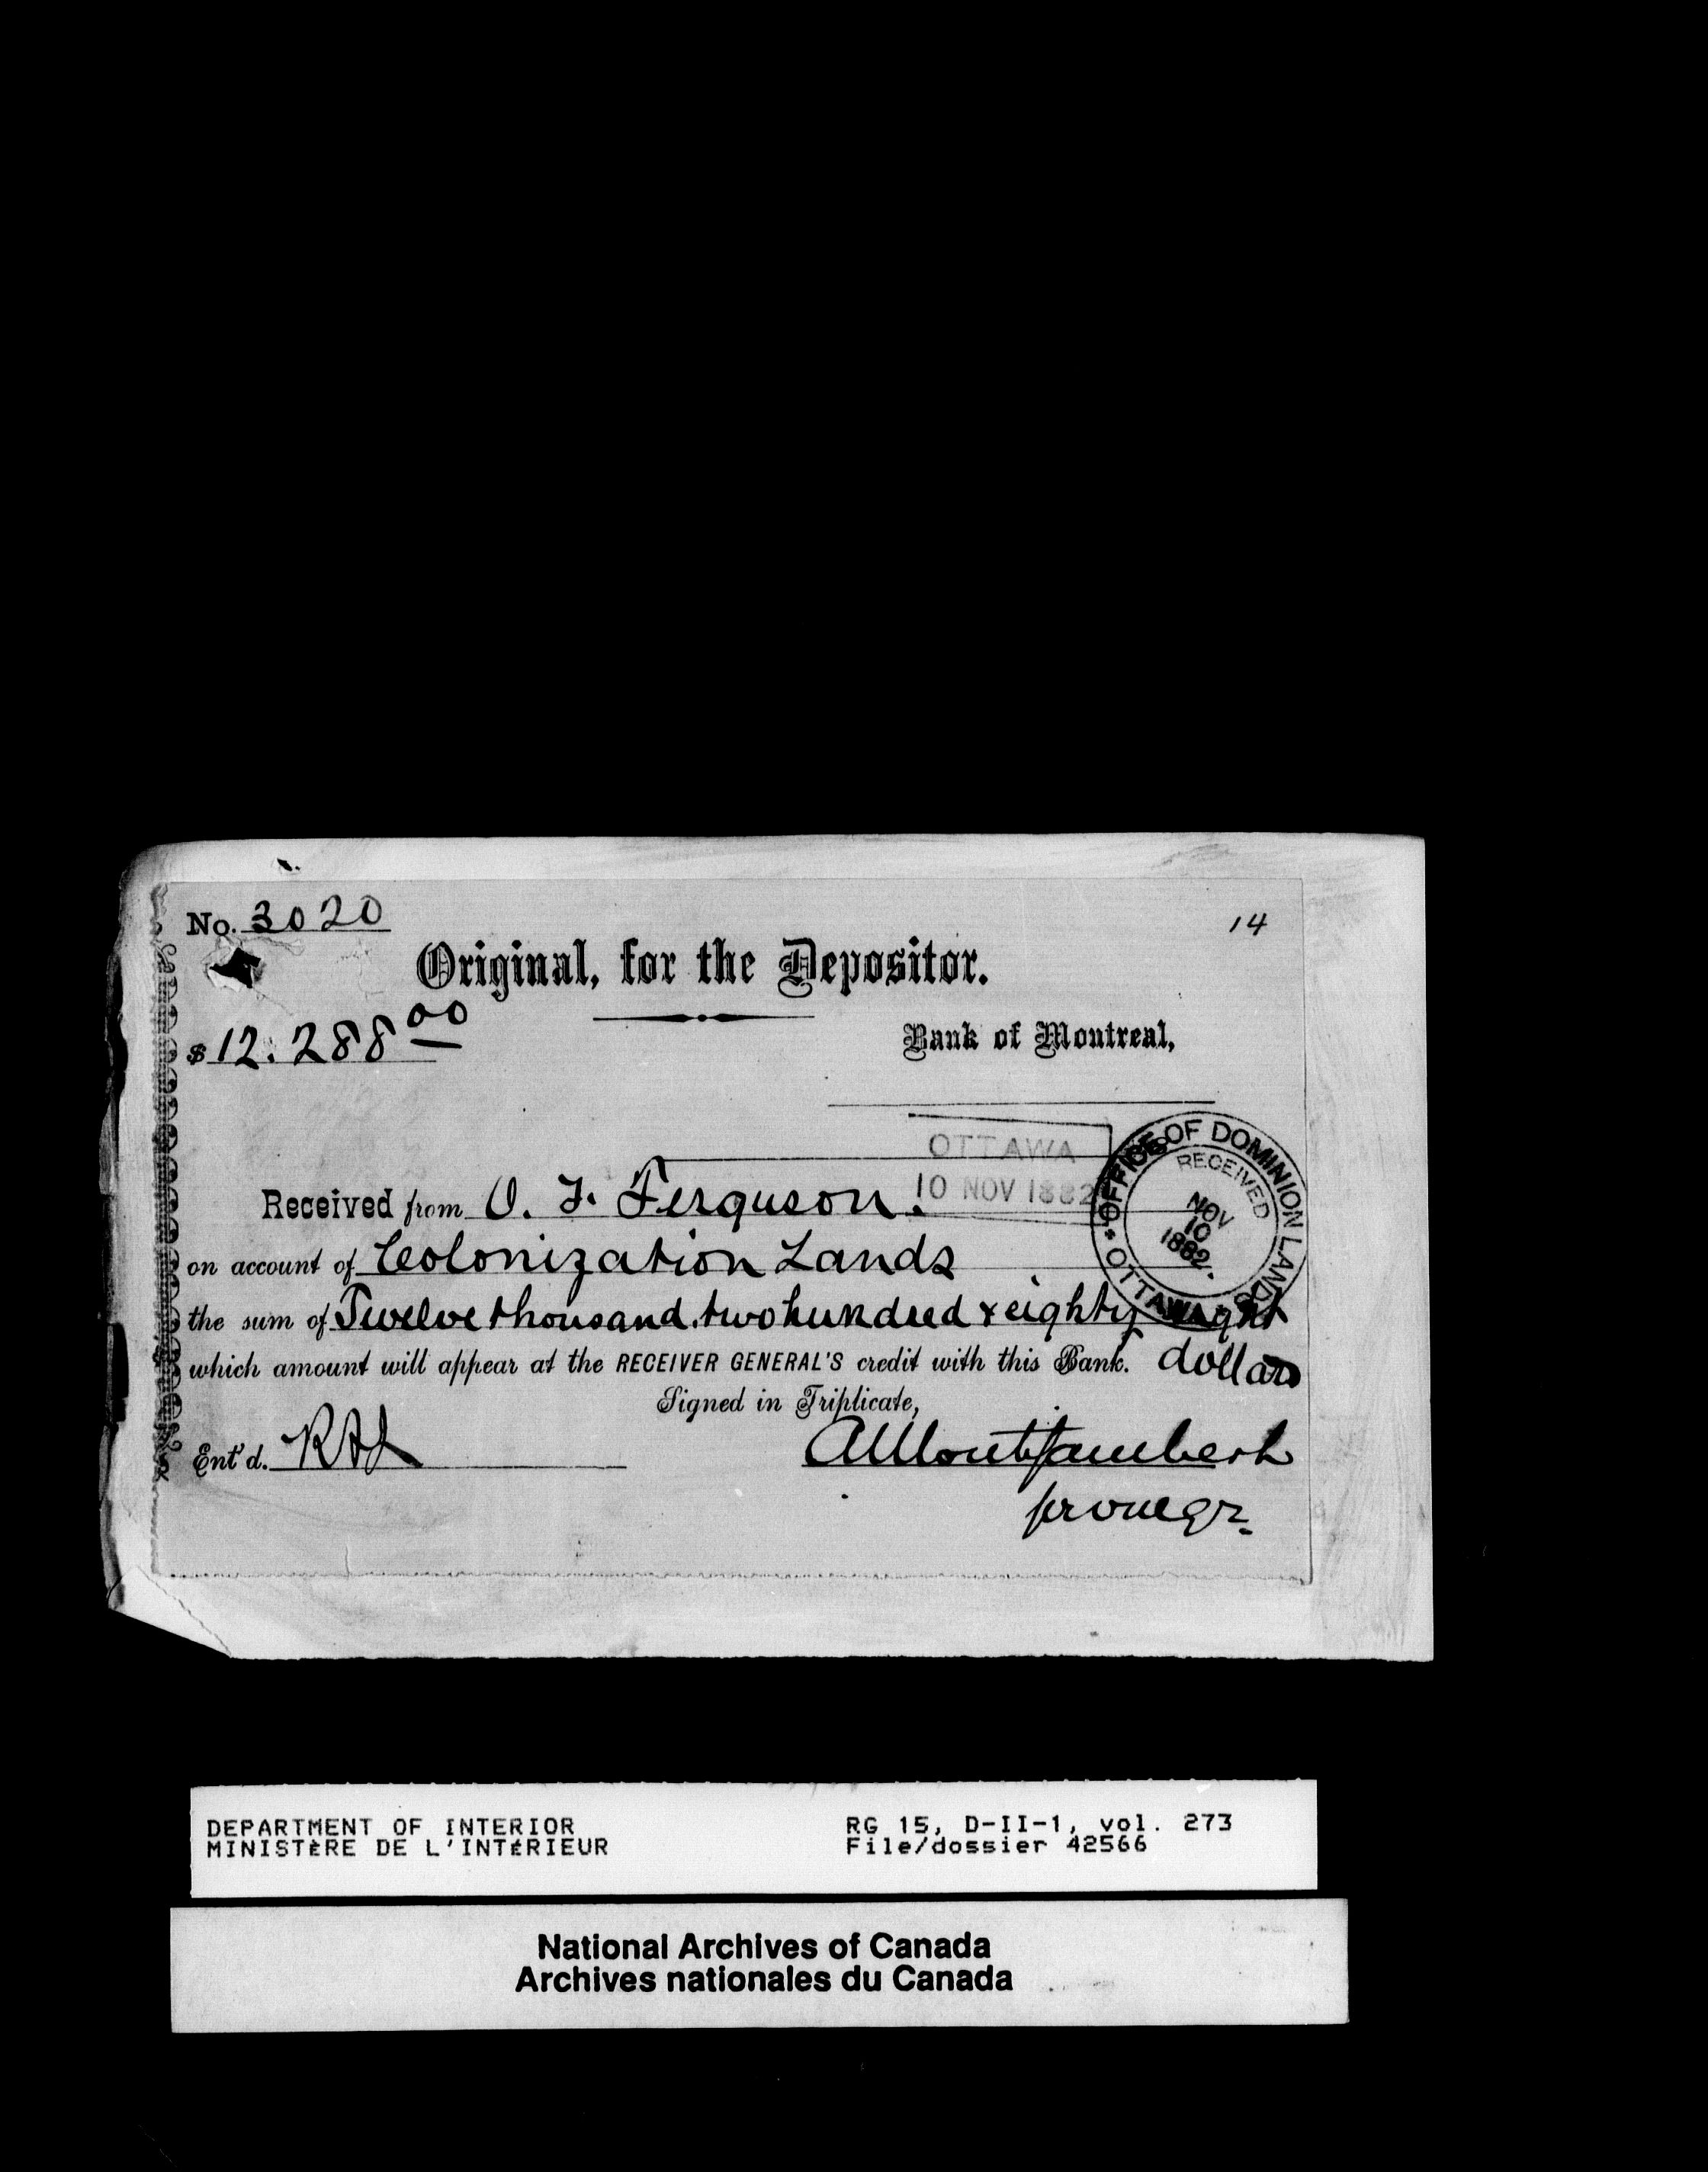 No. 3020
14
Original, for the Depositor.
$12.288 00
Bank of Montreal,
OTTAWA
10 NOV 1882
OFFICE OF DOMINION LANDS
RECEIVED
NOV
10
1882.
OTTAWA
Received from O. F. Ferguson.
on account of Colonization Lands
the sum of Twelve thousand two hundred & eighty eight
which amount will appear at the RECEIVER GENERAL'S credit with this Bank. dollars
Signed in Triplicate,
Ent'd.
A Montizambert
pro mgr.
DEPARTMENT OF INTERIOR
MINISTÈRE DE L'INTÉRIEUR
RG 15, D-II-1, vol. 273
File/dossier 42566
National Archives of Canada
Archives nationales du Canada